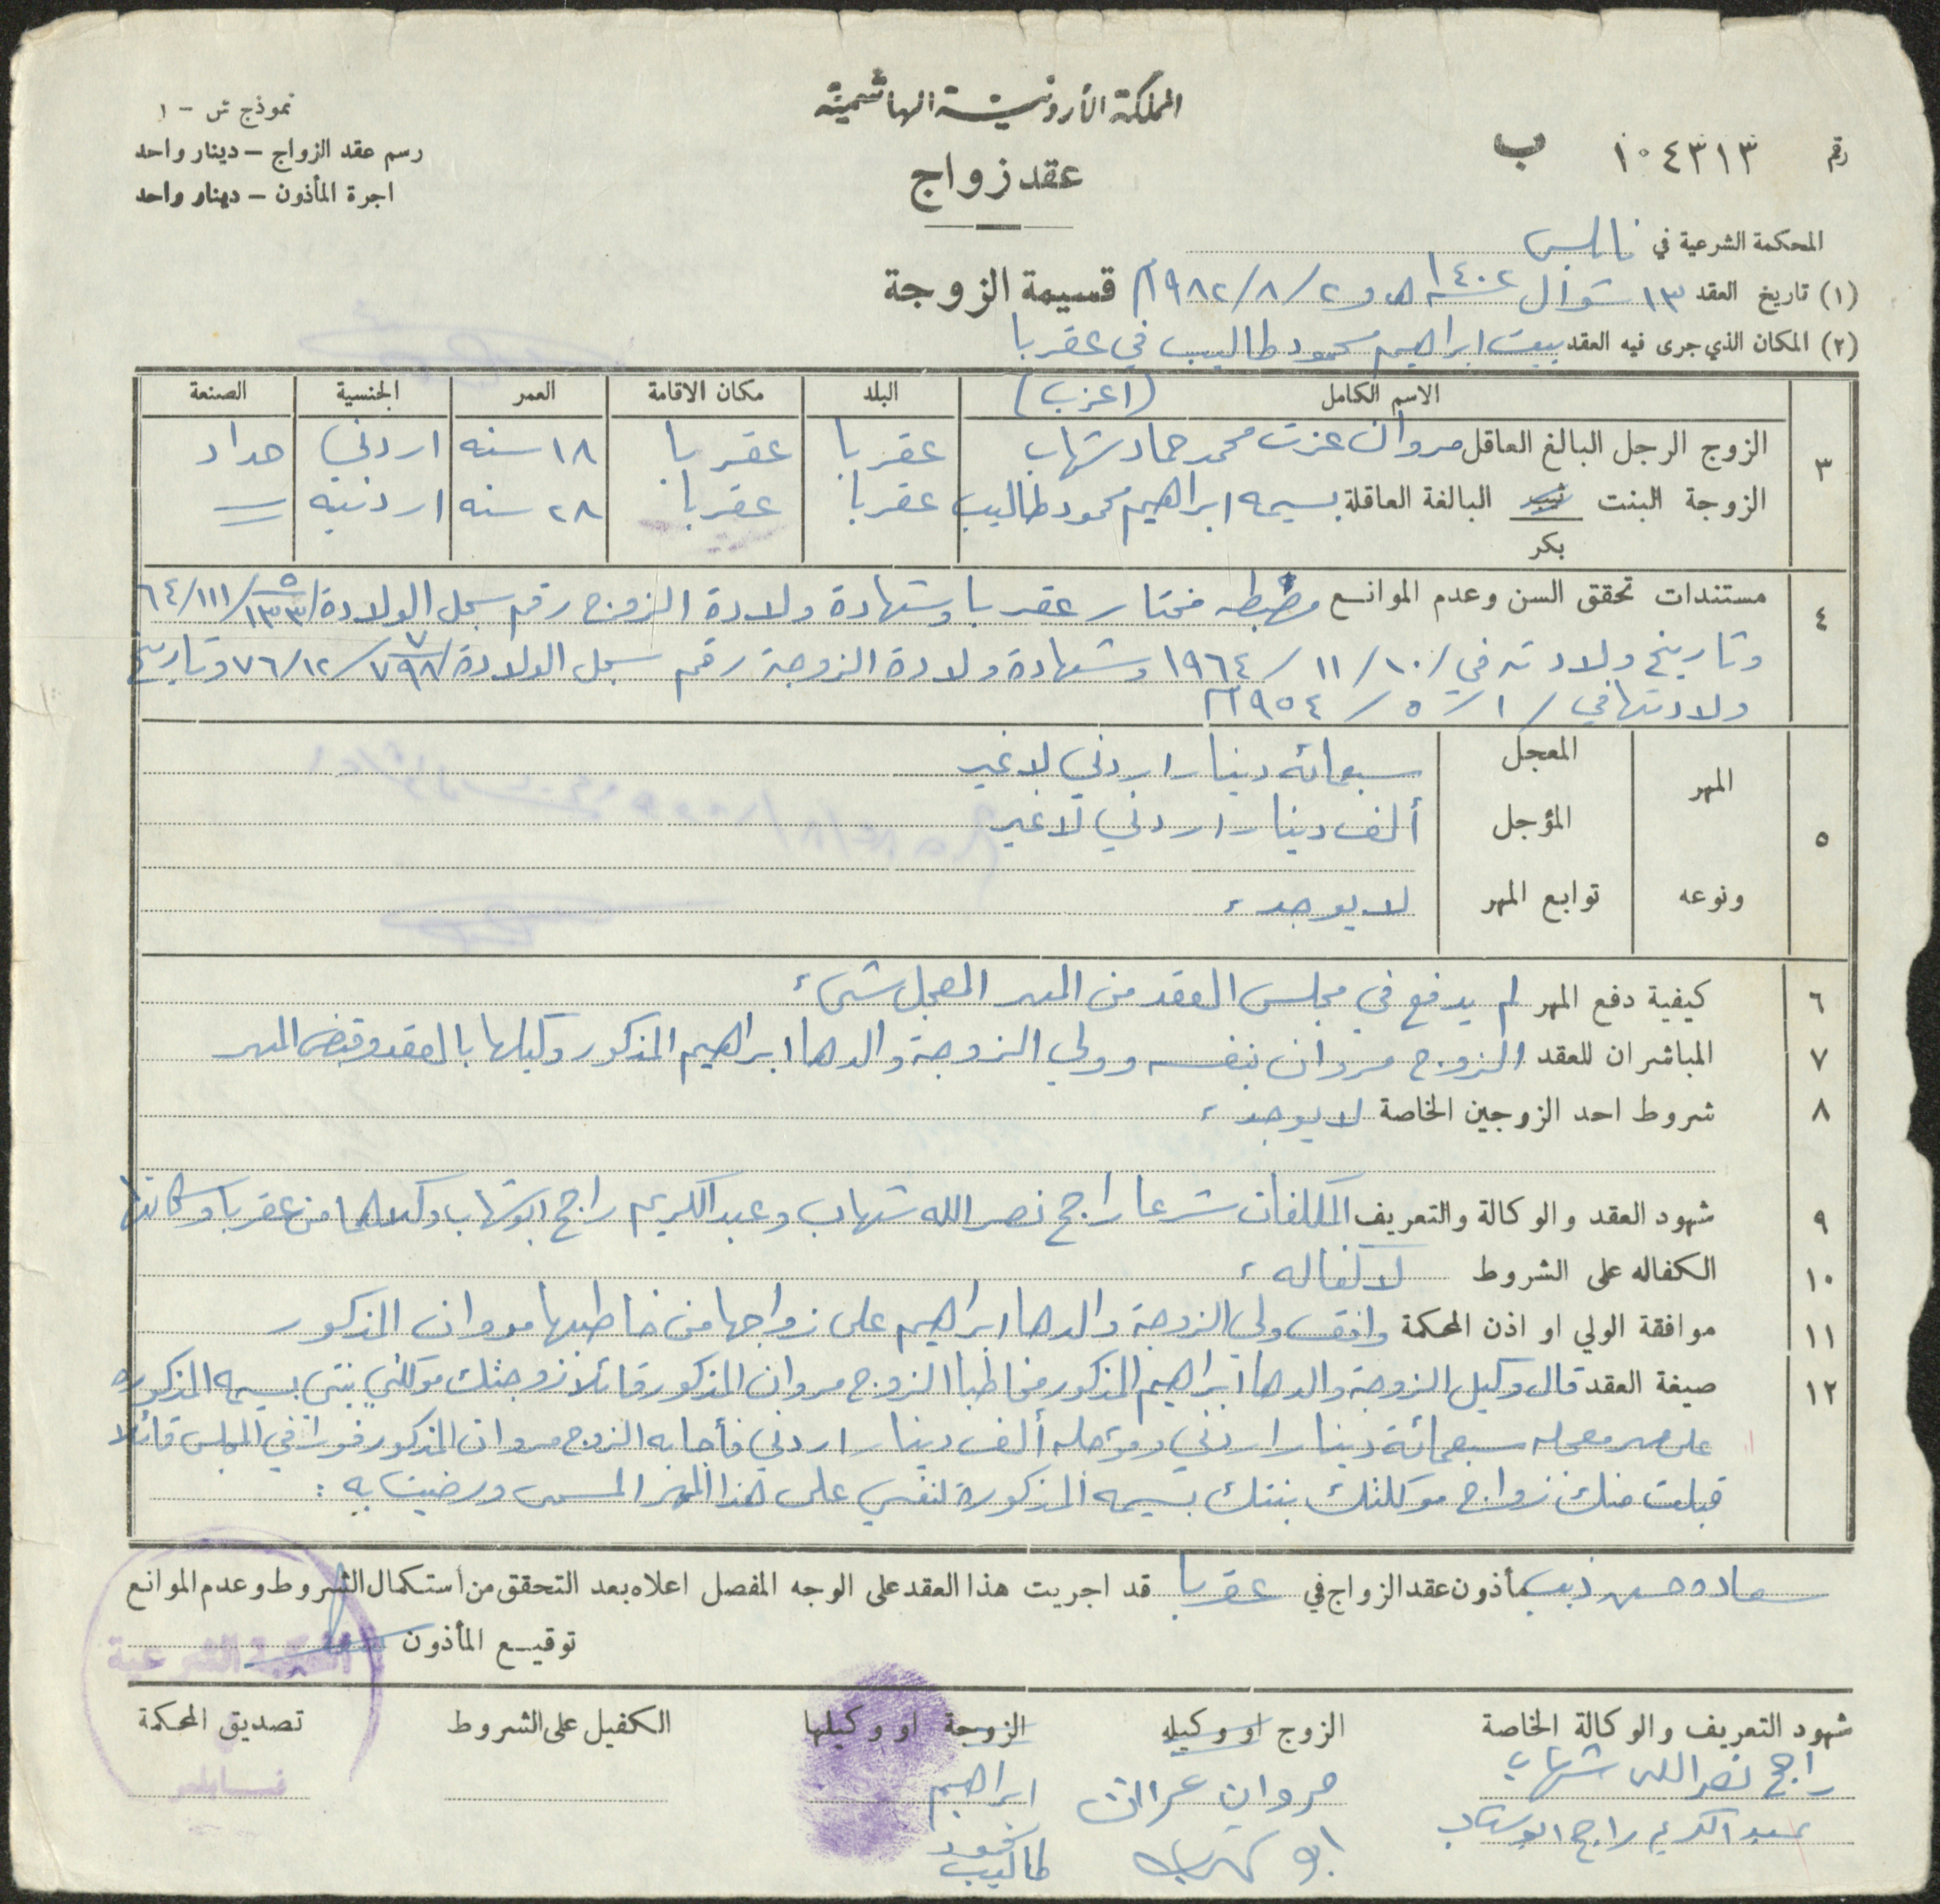 المملكة الأردنية الهاشمية
عقد زواج
نموذج ش - ١
رسم عقد الزواج - دينار واحد
اجرة المأذون - دينار واحد
رقم ١٠٤٣١٣ ب
المحكمة الشرعية في نابلس
(١) تاريخ العقد ١٣ شوال سنة ١٤٠٢ هـ و ٢/٨/١٩٨٢م
قسيمة الزوجة
(٢) المكان الذي جرى فيه العقد بيت ابراهيم محمود طاليب في عقربا
٣ الاسم الكامل (اعزب) البلد مكان الاقامة العمر الجنسية الصنعة
الزوج الرجل البالغ العاقل مروان عزت محمد حماد شهاب عقربا عقربا ١٨ سنه اردني حداد
الزوجة البنت ثيب البالغة العاقلة بسيمه ابراهيم محمود طاليب عقربا عقربا ٢٨ سنه اردنيه
بكر
٤ مستندات تحقق السن وعدم الموانع مضبطه مختار عقربا وشهادة ولادة الزوج رقم سجل الولادة ٥/١٣٣/١١١/٦٤
وتاريخ ولادته في ١٠/١١/١٩٦٤ وشهادة ولادة الزوجة رقم سجل الولادة ٧/٧٩٨/١٢/٧٦ وتاريخ
ولادتها في ١/٥/١٩٥٤م
٥ المهر ونوعه
المعجل سبعمائه دينار اردني لا غير
المؤجل ألف دينار اردني لا غير
توابع المهر لا يوجد،
٦ كيفية دفع المهر لم يدفع في مجلس العقد من المهر المعجل شيء
٧ المباشران للعقد الزوج مروان بنفسه وولي الزوجة والدها ابراهيم المذكور وكيلها بالعقد وقبض المهر
٨ شروط احد الزوجين الخاصة لا يوجد،
٩ شهود العقد والوكالة والتعريف المكلفان شرعا راجح نصر الله شهاب وعبد الكريم راجح ابو شهاب وكلاهما من عقربا وسكانها
١٠ الكفاله على الشروط لا كفاله،
١١ موافقة الولي او اذن المحكمة وافق ولي الزوجة والدها ابراهيم على زواجها من خاطبها مروان المذكور
١٢ صيغة العقد قال وكيل الزوجة والدها ابراهيم المذكور مخاطبا الزوج مروان المذكور قائلا زوجتك موكلتي بنتي بسيمه المذكوره
على مهر معجله سبعمائة دينار اردني ومؤجله ألف دينار اردني فأجابه الزوج مروان المذكور فورا في المجلس قائلا
قبلت منك زواج موكلتك بنتك بسيمه المذكورة لنفسي على هذا المهر المسمى ورضيت به :
حسن ذيب مأذون عقد الزواج في عقربا قد اجريت هذا العقد على الوجه المفصل اعلاه بعد التحقق من أستكمال الشروط وعدم الموانع
توقيع المأذون
المحكمة الشرعية
نابلس
شهود التعريف والوكالة الخاصة الزوج او وكيله الزوجة او وكيلها الكفيل على الشروط تصديق المحكمة
راجح نصر الله شهاب
عبد الكريم راجح ابو شهاب
مروان عزات
ابو شهاب
ابراهيم
محمود
طاليب